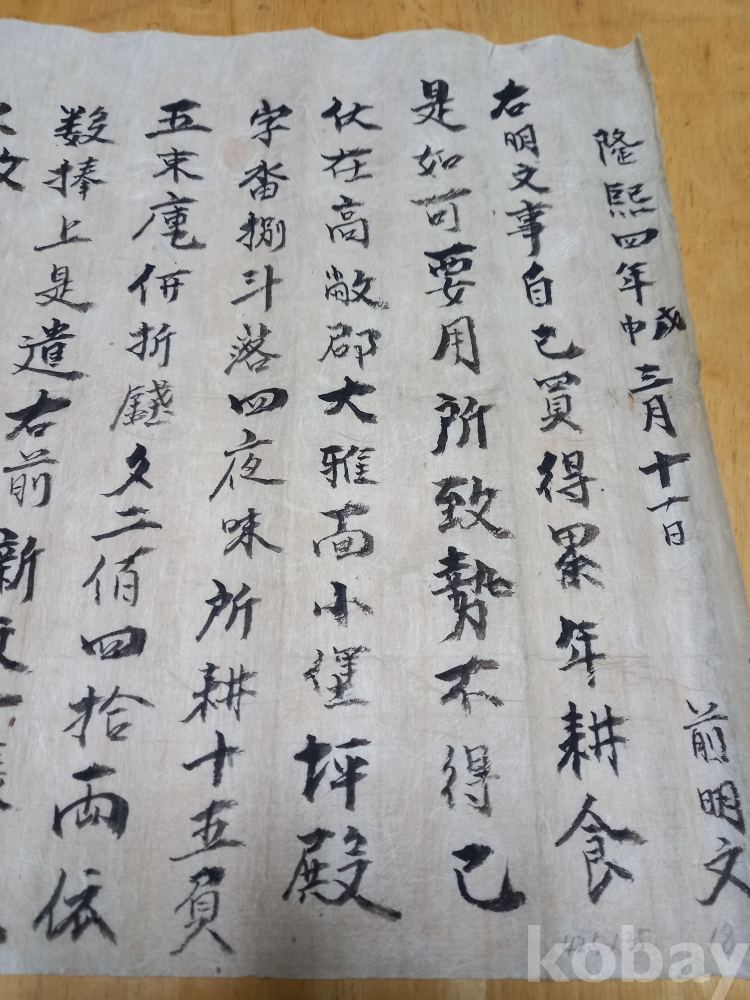 隆熙四年庚戌三月十一日
前明文
右明文事自己買得累年耕食
是如可要用所致勢不得已
伏在高敞郡大雅面小堡坪殿
字畓捌斗落四夜味所耕十五負
五束庫併折錢文二佰四拾兩依
数捧上是遣右前新
kobay